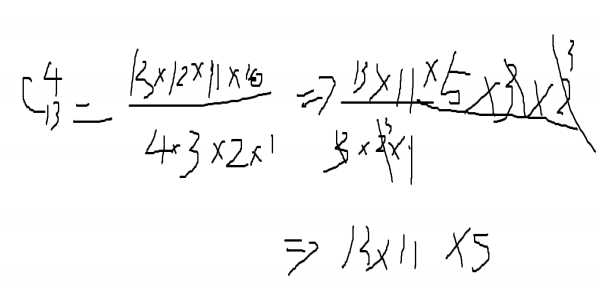 C₁₃⁴ = (13×12×11×10)/(4×3×2×1) => (13×11×5×3×2)/(3×2×1)
=> 13×11×5